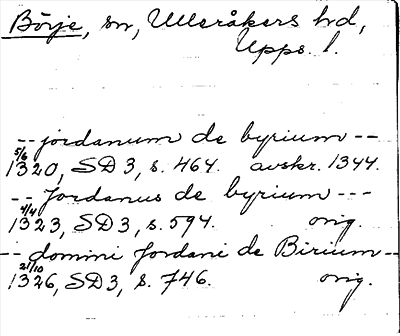 Börje, sn, Ulleråkers hd,
Upps. l.
-- jordanum de byrium --
5/6 1320, SD 3, s. 464. avskr. 1344.
-- Jordanus de byrium ---
4/4 1323, SD 3, s. 594. orig.
-- domini Jordani de Birium --
21/10 1326, SD 3, s. 746. orig.